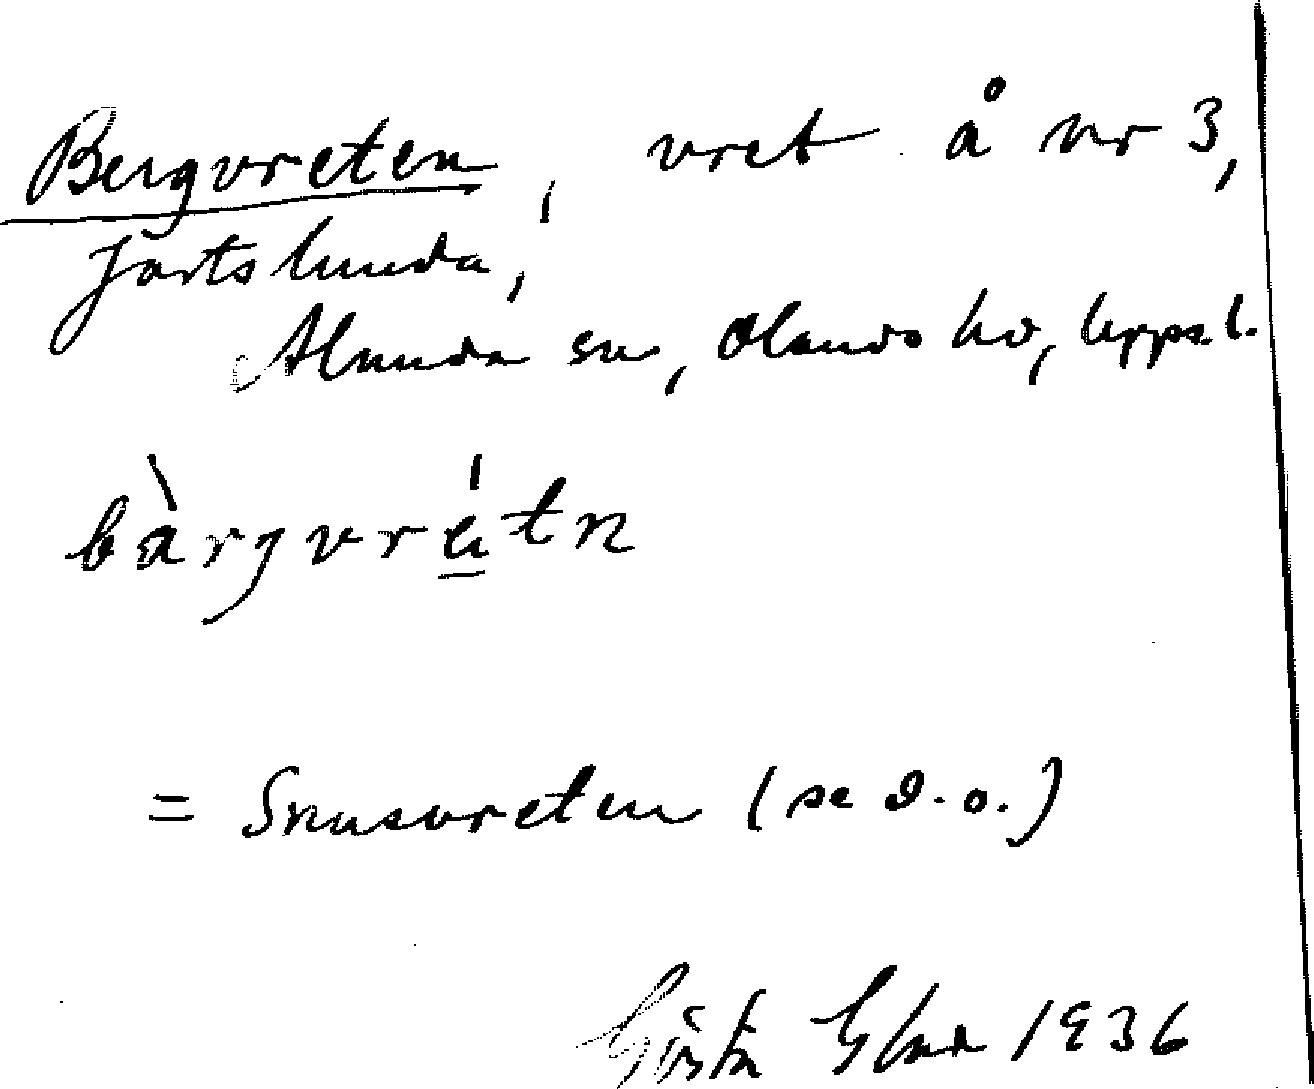 Bergvreten, vret å nr 3,
Jörtslunda,
Alunda sn, Olands hd, Upps. l.
= Snusvreten (se d. o.)
Gösta Elxx 1936